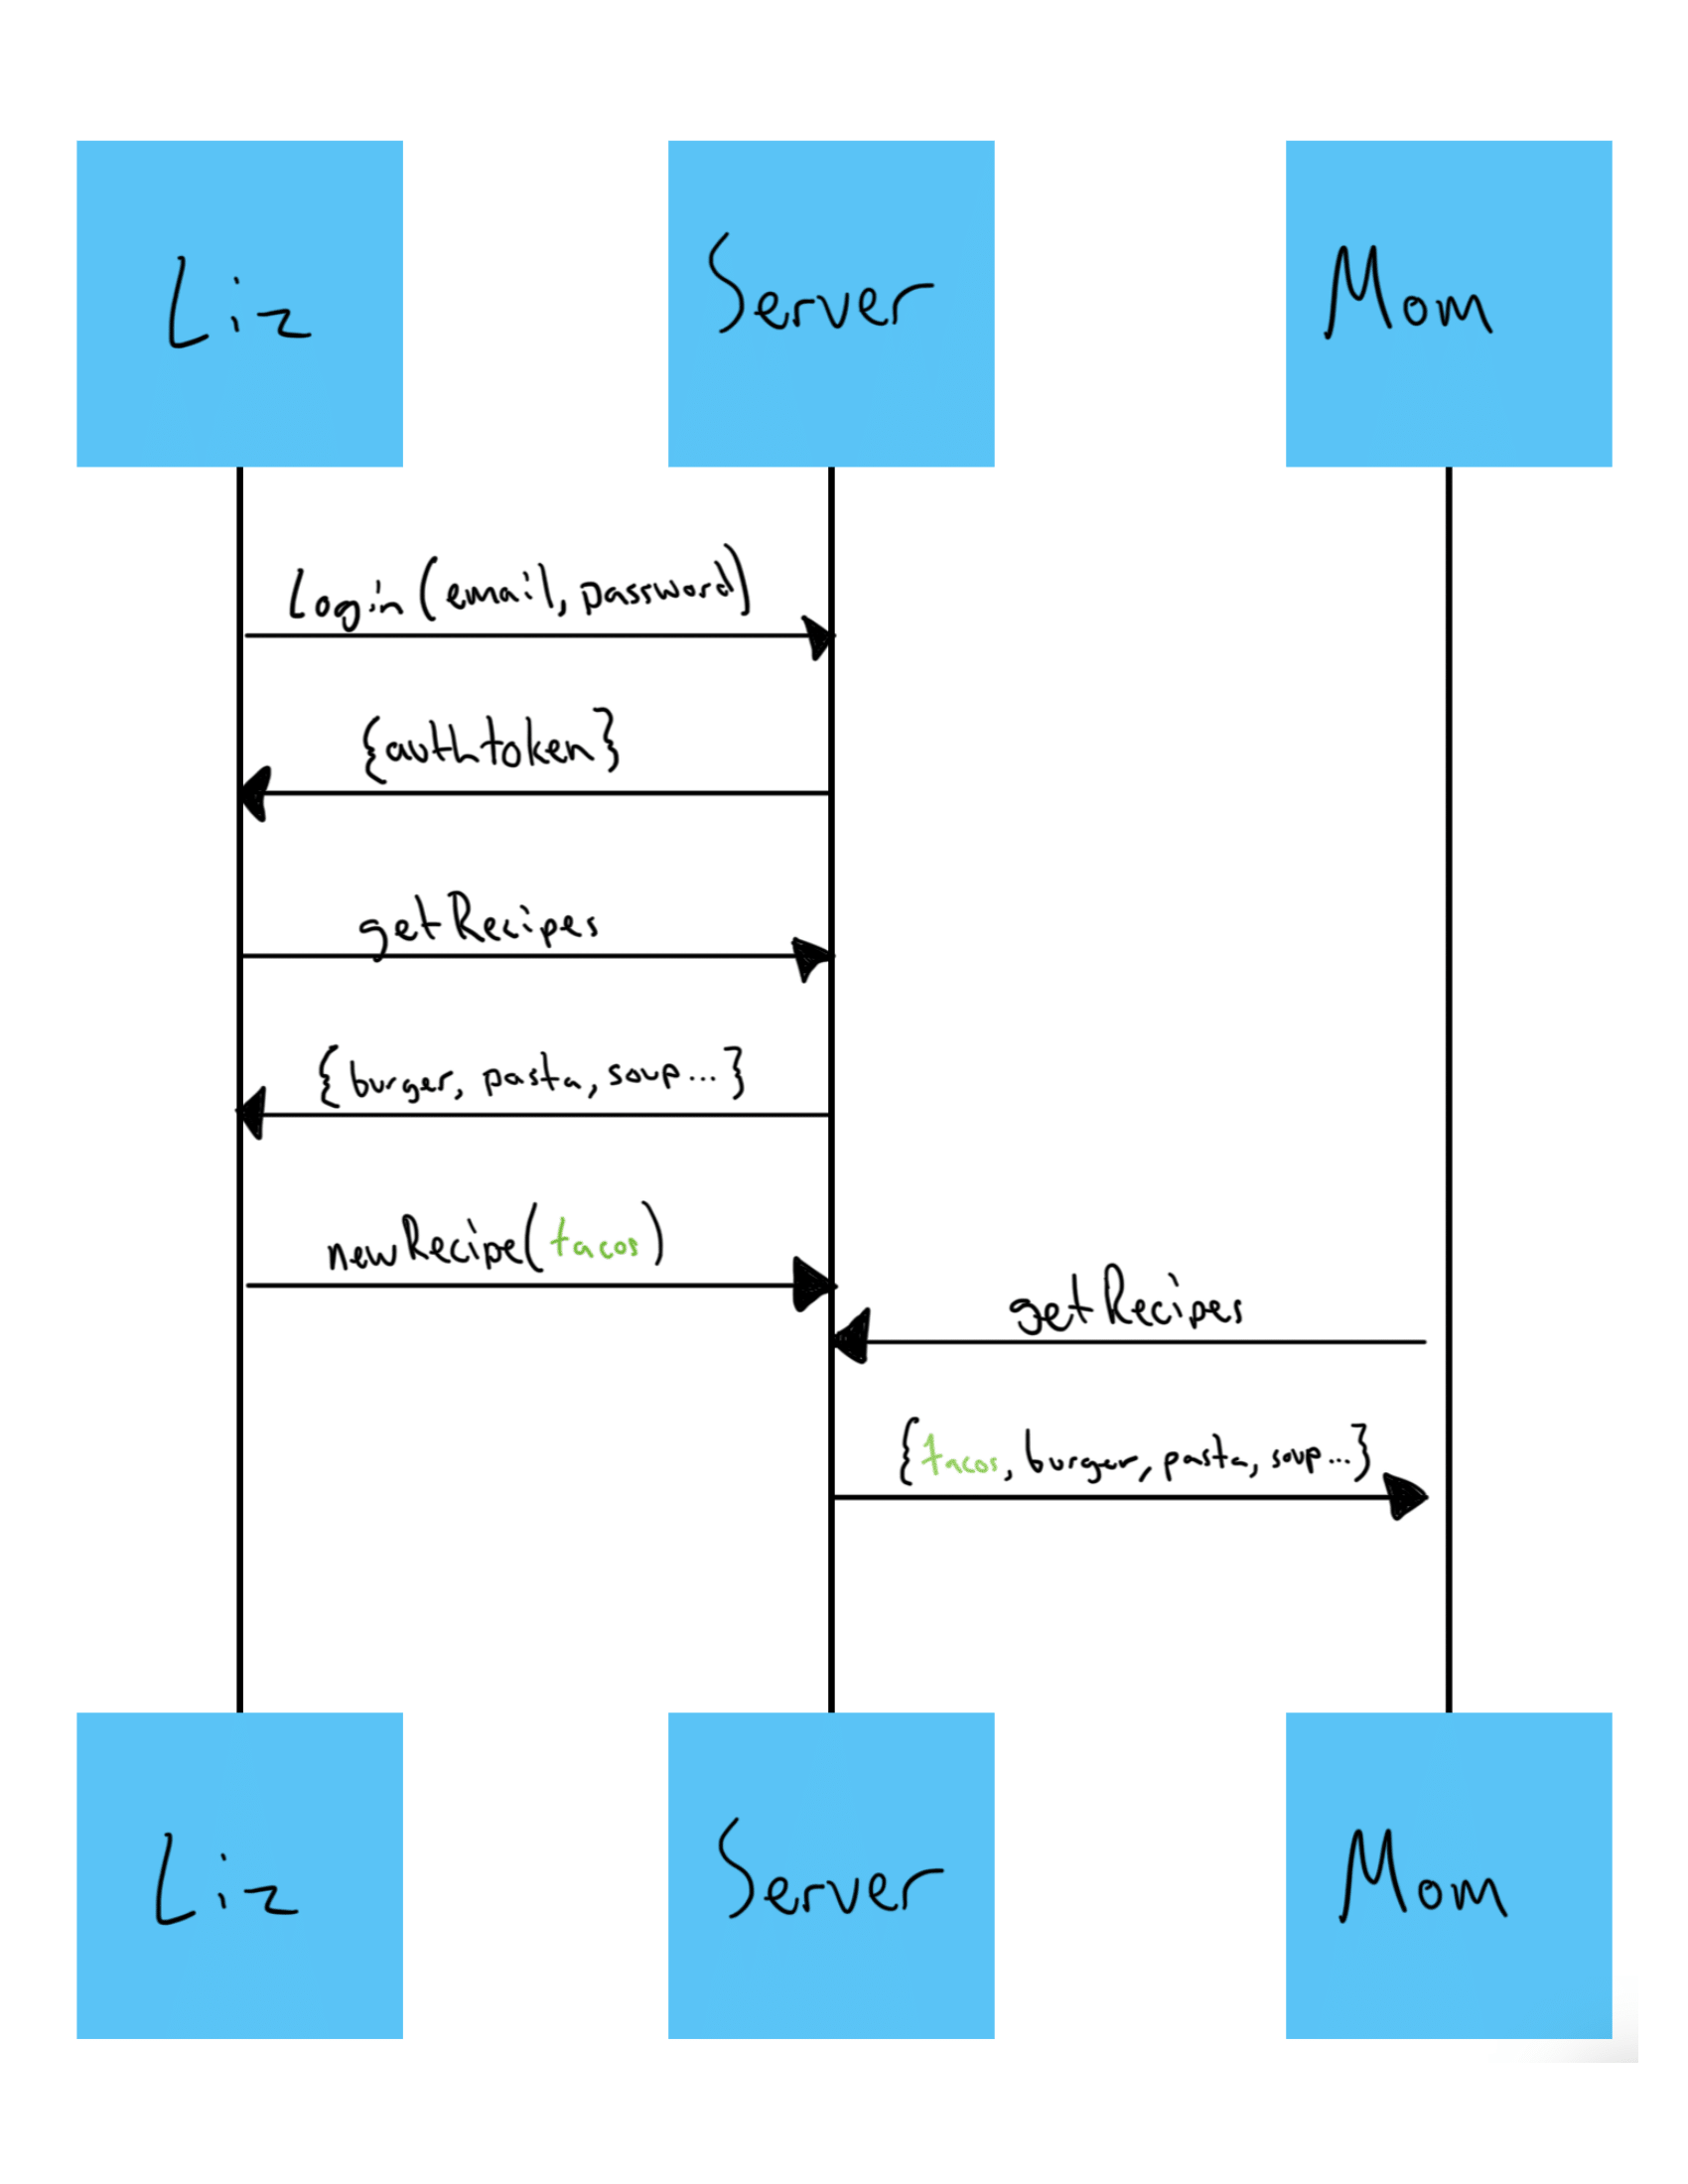 Liz
Server
Mom
Login(email, password)
{authtoken}
getRecipes
{burger, pasta, soup...}
newRecipe(tacos)
getRecipes
{tacos, burger, pasta, soup...}
Liz
Server
Mom